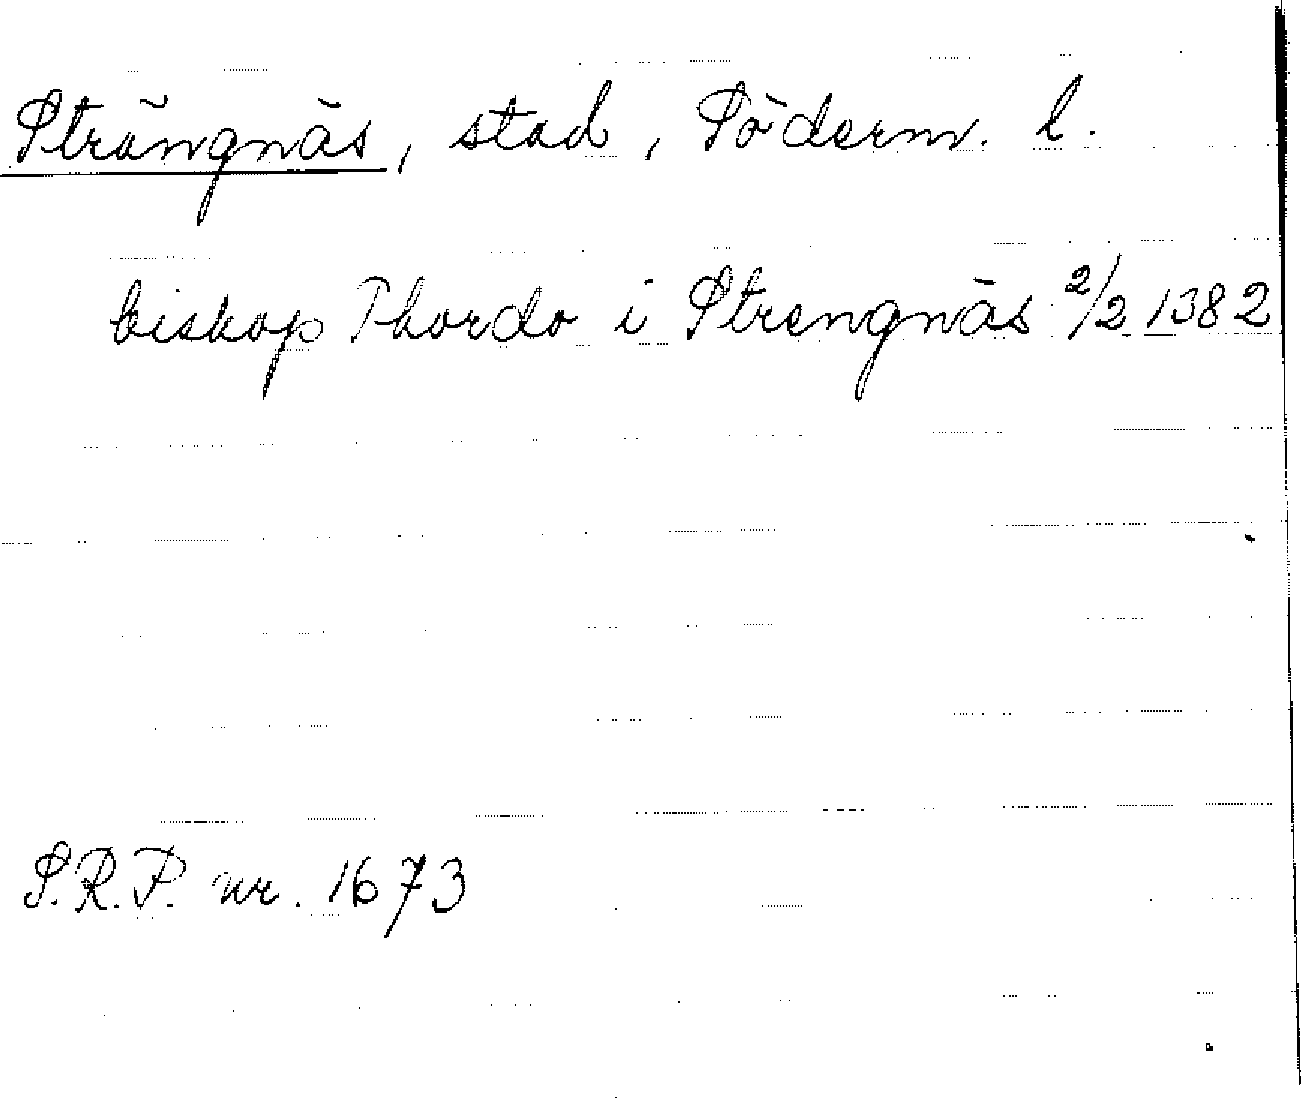 Strängnäs, stad, Söderm. l.
biskop Thordo i Strengnäs 2/2 1382
S.R.P. nr. 1673